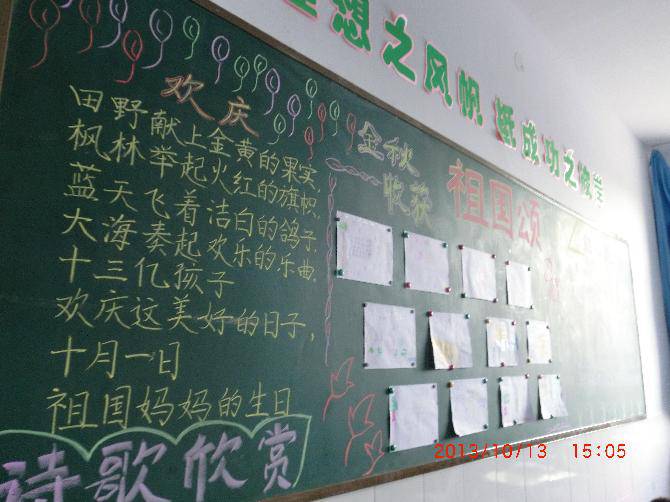 理想之风帆 抵成功之彼岸
欢庆
田野献上金黄的果实,
枫林举起火红的旗帜,
蓝天飞着洁白的鸽子,
大海奏起欢乐的乐曲.
十三亿孩子
欢庆这美好的日子,
十月一日
祖国妈妈的生日
诗歌欣赏
金秋
收获
祖国颂
2013/10/13 15:05